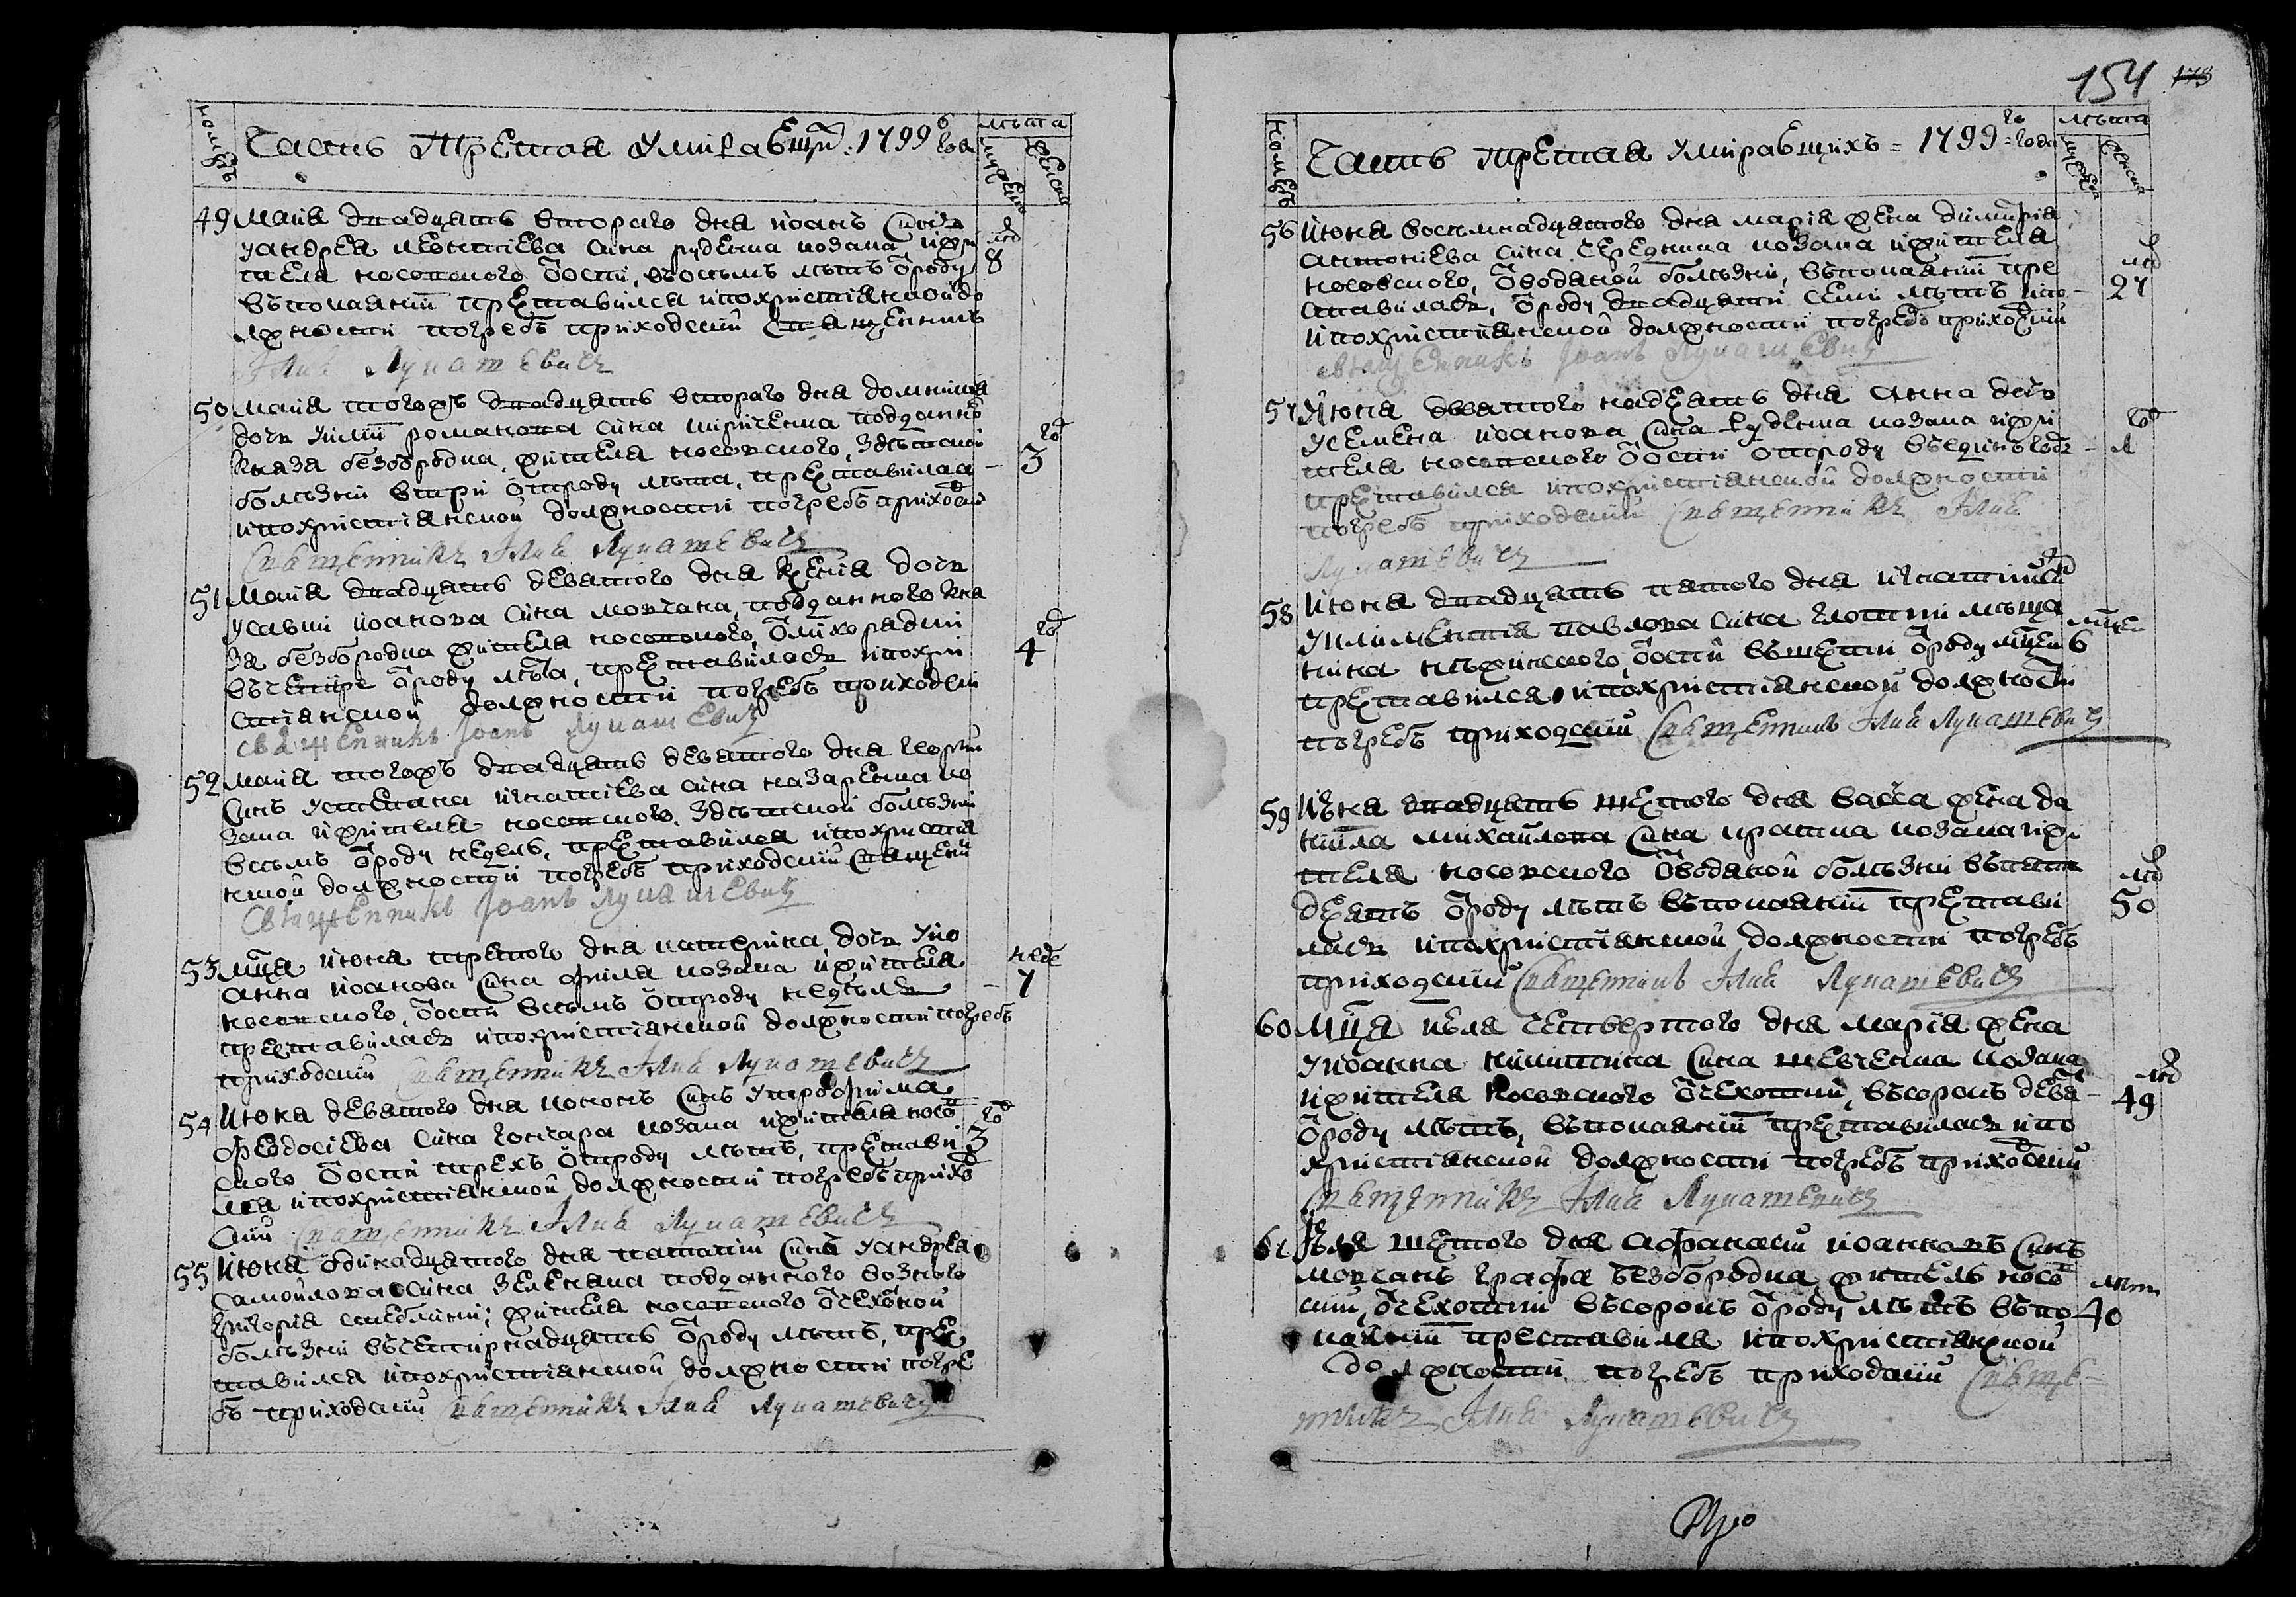 номеръ
Часть Третая Умираѣщи: 1799 года
лѣта
мужеска
женска
49 Маия двадцать втораго дня иоанъ Синъ
уандрея леонтиева сина руденка козака ижи
теля носовского ѿоспи, въосымъ лѣтъ ѿроду
въпокаянии преставился ипохристиянской до
лжности погребъ приходский Священникъ
Илия Лукашевичъ
лѣ
8
50 Маия тогожъ двадцать втораго дня домникия
дочь романова сина кириченка подданно
Князя безбородка, жителя носовского, здѣшней
болѣзни втри ѿтроду лѣта, преставилася
ипохристиянской должности погребъ приходский
Священникъ Илия Лукашевичъ
год
3
51 Маия двадцать девятого дня Ксения дочь
усавии иоанова сина мовчана, подданного Кня
зя безбородка жителя носовского, ѿлихорадки
вчетире ѿроду лѣта, преставилась ипохри
стиянской должности погребъ приходский
священникъ Иоанъ Лукашевичъ
год
4
52 Маия тогожъ двадцать девятого дня георгий
Синъ устефана игнатиева сина назаренка ко
зака ижителя носовского, здѣшней болѣзни
всемъ ѿроду недель, преставился ипохристия
нской должности погребъ приходский священи
Священникъ Иоанъ Лукашевичъ
53 Мця июня третого дня катерина дочь уио
анна иоанова Сина козака ижителя
носовского, ѿоспи всемъ ѿтроду недѣль
преставилась ипохристиянской должности погребъ
приходский Священникъ Илия Лукашевичъ
неде
7
54 Июня девятого дня кононъ Синъ утрофима
феодосиева сина гончара козака ижителя носо
вского ѿоспи трехъ ѿтроду лѣтъ, престави
лся ипохристиянской должности погребъ прихо
дский Священникъ Илия Лукашевичъ
год
3
55 Июня одинадцятого дня потапий Синъ уандрея
самойлова сина зеленяка подданного возного
григория жителя носовского ѿчехотной
болѣзни вчетирнадцать ѿроду лѣтъ, пре
ставился ипохристиянской должности погре
бъ приходский Священникъ Илия Лукашевичъ
154 178
номеръ
Часть третая Умираѣщихъ = 1799 = года
лѣта
мужеска
женска
56 Июня восымнадцятого дня мария жена димитрия
антониева сина Середнина козака ижителя
носовского, ѿводяной болѣзни, въпокаянии пре
ставилась, ѿроду двадцати семи лѣтъ ипо
ипохристиянской должности погребъ приходский
священникъ Иоанъ Лукашевичъ
лѣ
27
57 Июня девятого надцять дня Анна дочь
усемена иоанова Сина козака ижи
теля носовского ѿоспи ѿтроду въединъ годъ
преставился ипохристиянской должности
погребъ приходский Священникъ Илия
Лукашевичъ
год
58 Июня двадцать пятого дня игнатий
уклиментия павлова сина мѣща
нина нѣжинского, ѿоспи въшести ѿроду мцей
преставился ипохристиянской должности
погребъ приходский Священникъ Илия Лукашевичъ
мцей
6
59 Июня двадцать шестого дня васса жена да
ниила михайлова Сина козака ижи
теля носовского ѿводяной болѣзни въпять
десять ѿроду лѣтъ въпокаянии престави
лась ипохристиянской должности погребъ
приходский Священникъ Илия Лукашевичъ
лѣ
50
60 Мця июля четвертого дня мария жена
уиоанна Сина шевченка козака
ижителя носовского ѿчехотки, въсорокъ девя
ѿроду лѣтъ, въпокаянии преставилась ипо
християнской должности погребъ приходский
Священникъ Илия Лукашевичъ
лѣ
49
61 Июля шестого дня афанасий иоанновъ Синъ
мовчанъ графа безбородка житель носо
вский, ѿчехотки въсорокъ ѿроду лѣтъ въпо
каянии преставился ипохристиянской
должности погребъ приходский Священ
никъ Илия Лукашевичъ
лѣт
40